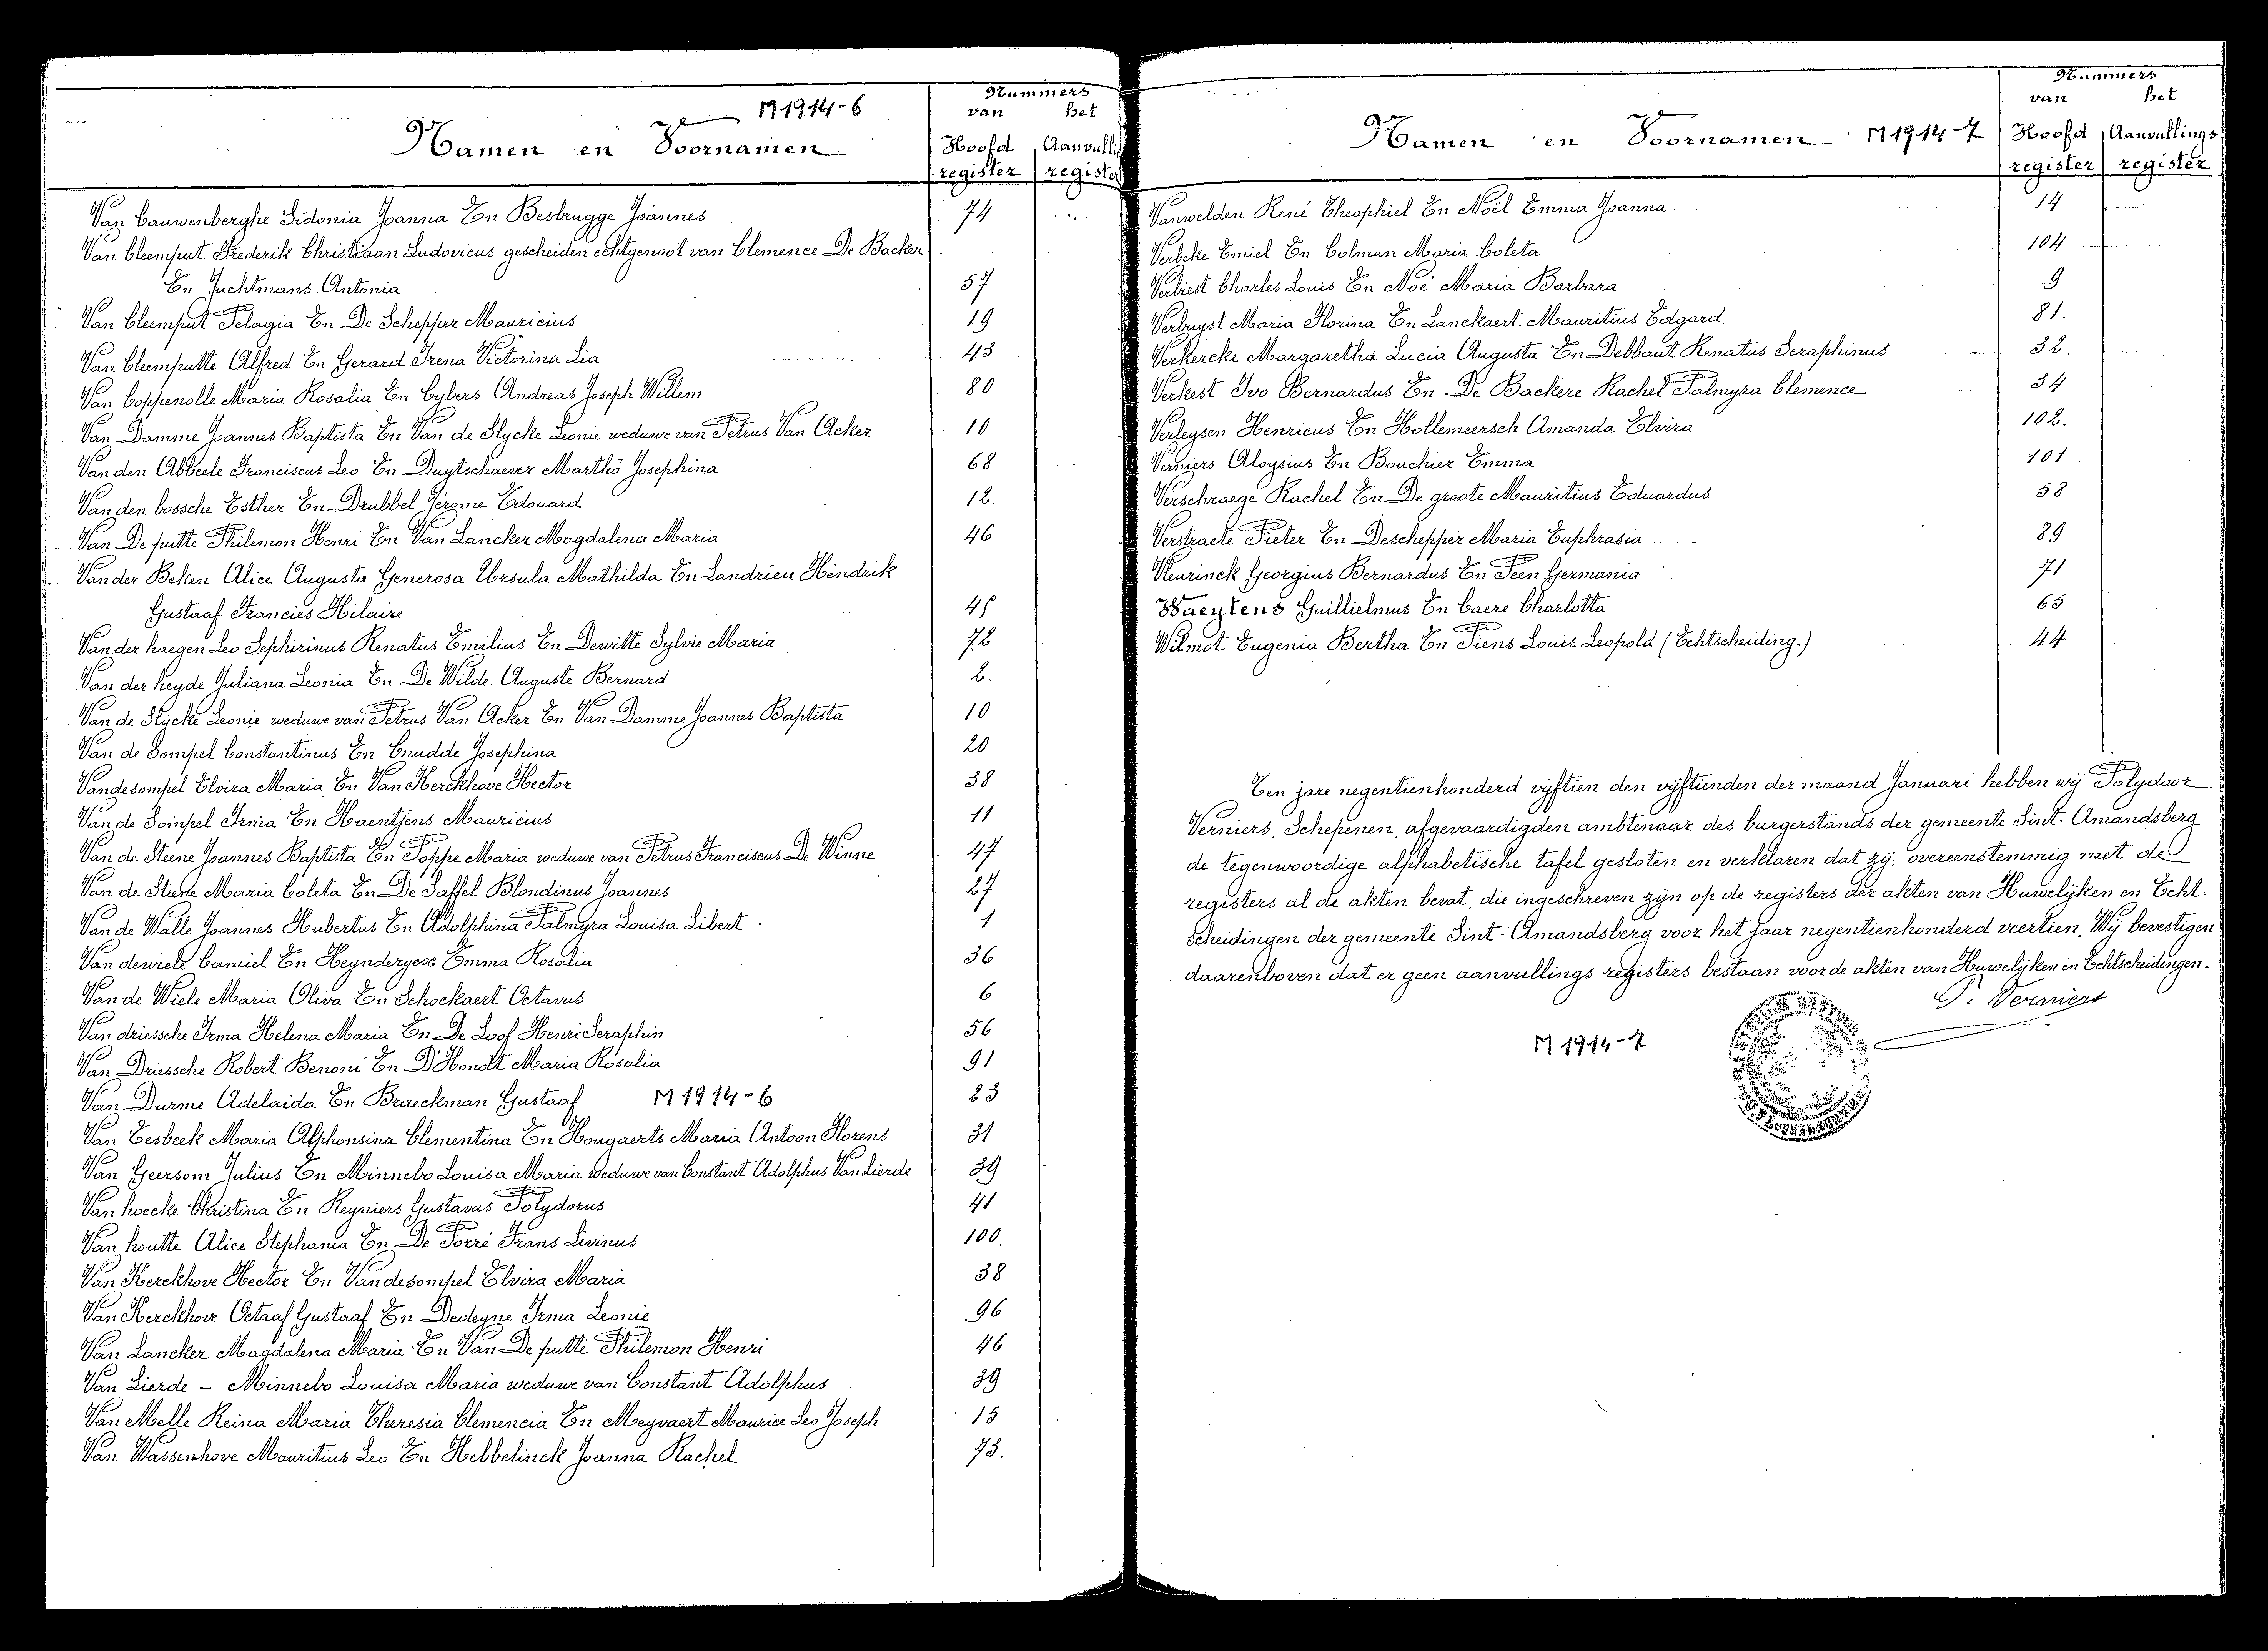 M 1914-6
Nummers
van het
Namen en Voornamen
Hoofd Aanvulli
register registe
Van Cauwenberghe Sidonia Joanna En Besbrugge Joannes 74
Van Cleemput Frederik Christiaan Ludovicus gescheiden echtgenoot van Clemence De Backer
En Juchtmans Antonia 57
Van Cleemput Pelagia En De Schepper Mauricius 19
Van Cleemputte Alfred En Gerard Irena Victorina Lia 43
Van Coppenolle Maria Rosalia En Cybers Andreas Joseph Willem 80
Van Damme Joannes Baptista En Van de Slycke Leonie weduwe van Petrus Van Acker 10
Van den Abbeele Franciscus Leo En Duytschaever Martha Josephina 68
Van den bossche Esther En Drubbel Jérome Edouard 12.
Van De putte Philemon Henri En Van Lancker Magdalena Maria 46
Van der Beken Alice Augusta Generosa Ursula Mathilda En Landrieu Hendrik
Gustaaf Francies Hilaire 45
Van der haegen Leo Sephirinus Renatus Emilius En Dewitte Sylvie Maria 72
Van der heyde Juliana Leonia En De Wilde Auguste Bernard 2.
Van de Slycke Leonie weduwe van Petrus Van Acker En Van Damme Joannes Baptista 10
Van de Sompel Constantinus En Cnudde Josephina 20
Vandesompel Elvira Maria En Van Kerckhove Hector 38
Van de Sompel Irma En Haentjens Mauricius 11
Van de Steene Joannes Baptista En Poppe Maria weduwe van Petrus Franciscus De Winne 47
Van de Steene Maria Coleta En De Saffel Blondinus Joannes 27
Van de Walle Joannes Hubertus En Adolphina Palmyra Louisa Libert 1
Van dewiele Camiel En Heynderyckx Emma Rosalia 36
Van de Wiele Maria Oliva En Schockaert Octavus 6
Van driessche Irma Helena Maria En De Loof Henri Seraphin 56
Van Driessche Robert Benoni En D'Hondt Maria Rosalia 91
Van Durme Adelaida En Braeckman Gustaaf M 1914-6 23
Van Eesbeek Maria Alphonsina Clementina En Hougaerts Maria Antoon Florens 31
Van Geersom Julius En Minnebo Louisa Maria weduwe van Constant Adolphus Van Lierde 39
Van hoecke Christina En Reyniers Gustavus Polydorus 41
Van houtte Alice Stephania En De Porré Frans Livinus 100.
Van Kerckhove Hector En Vandesompel Elvira Maria 38
Van Kerckhove Octaaf Gustaaf En Dedeyne Irma Leonie 96
Van Lancker Magdalena Maria En Van De putte Philemon Henri 46
Van Lierde - Minnebo Louisa Maria weduwe van Constant Adolphus 39
Van Melle Reina Maria Theresia Clemencia En Meyvaert Maurice Leo Joseph 15
Van Wassenhove Mauritius Leo En Hebbelinck Joanna Rachel 73.
Nummers
van het
Namen en Voornamen M 1914-7 Hoofd Aanvullings
register register
Vanwelden René Theophiel En Noël Emma Joanna 14
Verbeke Emiel En Colman Maria Coleta 104
Verbiest Charles Louis En Noé Maria Barbara 9
Verbuyst Maria Florina En Lanckaert Mauritius Edgard. 81
Verkercke Margaretha Lucia Augusta En Debbaut Renatus Seraphinus 32.
Verkest Ivo Bernardus En De Backere Rachel Palmyra Clemence 34
Verleysen Henricus En Hollemeersch Amanda Elvira 102.
Verniers Aloysius En Bouchier Emma 101
Verschraege Rachel En De groote Mauritius Eduardus 58
Verstraete Pieter En Deschepper Maria Euphrasia 89
Vleurinck Georgius Bernardus En Peen Germania 71
Waeytens Guillielmus En Caere Charlotta 65
Wilmot Eugenia Bertha En Piens Louis Leopold (Echtscheiding.) 44
Ten jare negentienhonderd vijftien den vijftienden der maand Januari hebben wij Polydoor
Verniers, Schepenen, afgevaardigden ambtenaar des burgerstands der gemeente Sint-Amandsberg
de tegenwoordige alphabetische tafel gesloten en verklaren dat zij, overeenstemmig met de
registers al de akten bevat, die ingeschreven zijn op de registers der akten van Huwelijken en Echt-
scheidingen der gemeente Sint-Amandsberg voor het jaar negentienhonderd veertien. Wij bevestigen
daarenboven dat er geen aanvullings registers bestaan voor de akten van Huwelijken en Echtscheidingen.
P. Verniers
M 1914-7